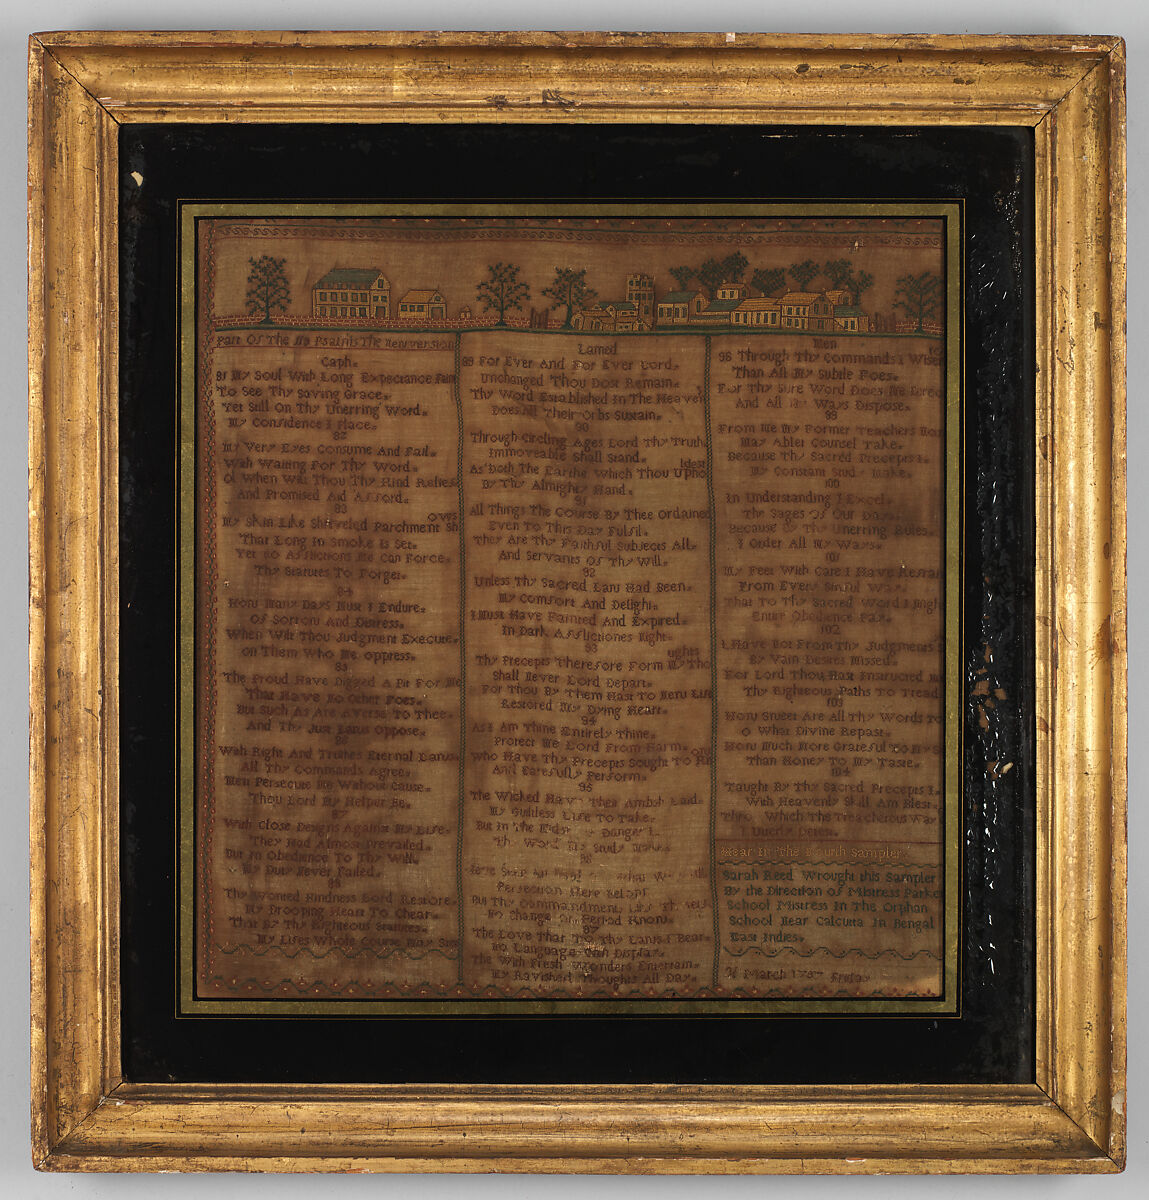 Part Of The 119 Psalms The New version
Caph.
81 My Soul With Long Expectance Fain
To See Thy Saving Grace.
Yet Still On Thy Unerring Word.
My Confidence I Place.
82
My Very Eyes Consume And Fail.
With Waiting For Thy Word.
O! When Wilt Thou Thy Kind Relief
And Promised Aid Afford.
83
My Skin Like Shriveled Parchment Sh
ows
That Long In Smoke Is Set.
Yet no Afflictions Me Can Force.
Thy Statutes To Forget.
84
How Many Days Must I Endure.
Of Sorrow And Distress.
When Wilt Thou Judgment Execute.
On Them Who Me Oppress.
85
The Proud Have Digged A Pit For Me
That Have No Other Foes.
But Such As Are Averse To Thee.
And Thy Just Laws Oppose.
86
With Right And Truthes Eternal Laws
All Thy Commands Agree.
Men Persecute Me Without Cause.
Thou Lord My Helper Be.
87
With Close Designs Against My Life.
They Had Almost Prevailed.
But In Obedience To Thy Will.
My Duty Never Failed.
88
Thy Wonted Kindness Lord Restore.
My Drooping Heart To Chear.
That By Thy Righteous Statutes.
My Lifes Whole Course May Ste
Lamed
89 For Ever And For Ever Lord.
Unchanged Thou Dost Remain.
Thy Word Established In The Heaven
s
Does All Their Orbs Sustain.
90
Through Circling Ages Lord Thy Truth
Immoveable Shall Stand.
As Doth The Earthe Which Thou Upho
ldest
By Thy Almighty Hand.
91
All Things The Course By Thee Ordained
Even To This Day Fulfil.
They Are Thy Faithful Subjects All.
And Servants Of Thy Will.
92
Unless Thy Sacred Law Had Been.
My Comfort And Delight.
I Must Have Fainted And Expired.
In Dark Afflictiones Night.
93
Thy Precepts Therefore Form My Tho
ughts
Shall Never Lord Depart.
For Thou By Them Hast To New Life
Restored My Dying Heart.
94
As I Am Thine Entirely Thine.
Protect Me Lord From Harm.
Who Have Thy Precepts Sought To Kn
ow
And Carefully Perform.
95
The Wicked Have Their Ambush Laid.
My Guiltless Life To Take.
But In The Midst Danger I.
Thy Word My Study Make.
96
Perfection Here
But Thy Commandment Like
No Change Period Know.
97
The Love That To Thy Laws I Bear.
No Language Can Display.
The With Fresh Wonders Entertain.
My Ravished Thoughts All Day.
Men
98 Through Thy Commands I Wiser
Than All My Subtle Foes.
For Thy Sure Word Does Me Direc
And All My Ways Dispose.
99
From Me My Former Teachers Now
May Abler Counsel Take.
Because Thy Sacred Precepts I.
My Constant Study Make.
100
In Understanding I Excel.
The Sages Of Our Days.
Because By Thy Unerring Rules.
I Order All My Ways.
101
My Feet With Care I Have Refrai
From Every Sinful Way.
That To Thy Sacred Word I Migh
Entire Obedience Pay.
102
I Have Not From Thy Judgments
By Vain Desires Missed.
For Lord Thou Hast Instructed
Thy Righteous Paths To Tread
103
How Sweet Are All Thy Words To
O What Divine Repast.
How Much More Grateful To My S
Than Honey To My Taste.
104
Taught By Thy Sacred Precepts I.
With Heavenly Skill Am Blest.
Thro Which The Treacherous Way
I Utterly Detest.
Near In The Fourth Sampler.
Sarah Reed Wrought this Sampler
By the Direction of Mistress Parke
School Mistress In The Orphan
School Near Calcutta In Bengal
East Indies.
March 1787 Friday